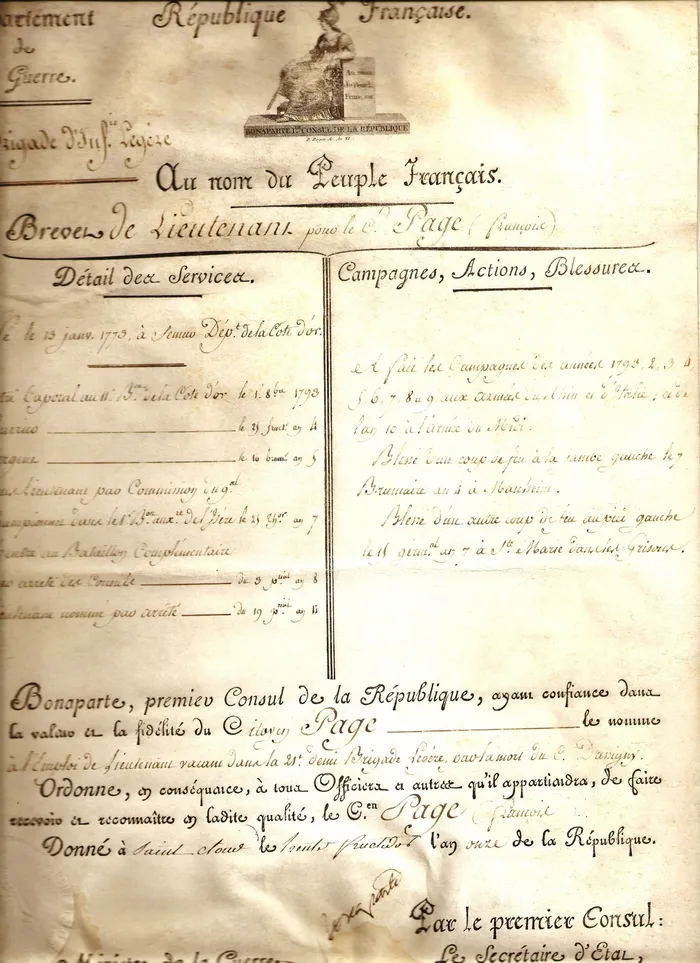 artement République Française.
de
Guerre.
Au nom
du Peuple
Français
BONAPARTE 1er CONSUL DE LA RÉPUBLIQUE
rigade d'Infrie Légère
Au nom du Peuple Français.
Brevet de Lieutenant pour le Cen Page (François)
Détail des Services.
Campagnes, Actions, Blessures.
é le 13 janv. 1773, à Semur Dépt. de la Côte d'or.
tré Caporal au 11e Bon de la Côte d'or le 1er 8bre 1793
le 21 fruct. an 4
le 10 brum. an 5
ous Lieutenant par Commission du gal
Championnet dans le 1er Bon auxre de l'Isère le 21 an 7
au Bataillon Complémentaire
ar arrêté des Consuls du 3 an 8
ieutenant nommé par arrêté du 19 an 11
A fait les Campagnes des années 1793, 2, 3 4
5, 6, 7, 8 et 9 aux armées du Rhin et d'Italie; et de
l'an 10 à l'armée du Midi.
Blessé d'un coup de feu à la jambe gauche le 7
Brumaire an 4 à Manheim.
Blessé d'un autre coup de feu au pied gauche
le 11 germal an 7 à Ste Marie dans les Grisons.
Bonaparte, premier Consul de la République, ayant confiance dans
la valeur et la fidélité du Citoyen Page le nomme
à l'Emploi de Lieutenant vacant dans la 21e demi Brigade Légère, par la mort du C. Davigny.
Ordonne, en conséquence, à tous Officiers et autres qu'il appartiendra, de faire
recevoir et reconnaître en ladite qualité, le Cen Page François
Donné à Saint Cloud le trente fructidor l'an onze de la République.
Bonaparte
Par le premier Consul:
Le Secrétaire d'Etat,
Ministre de la Guerre